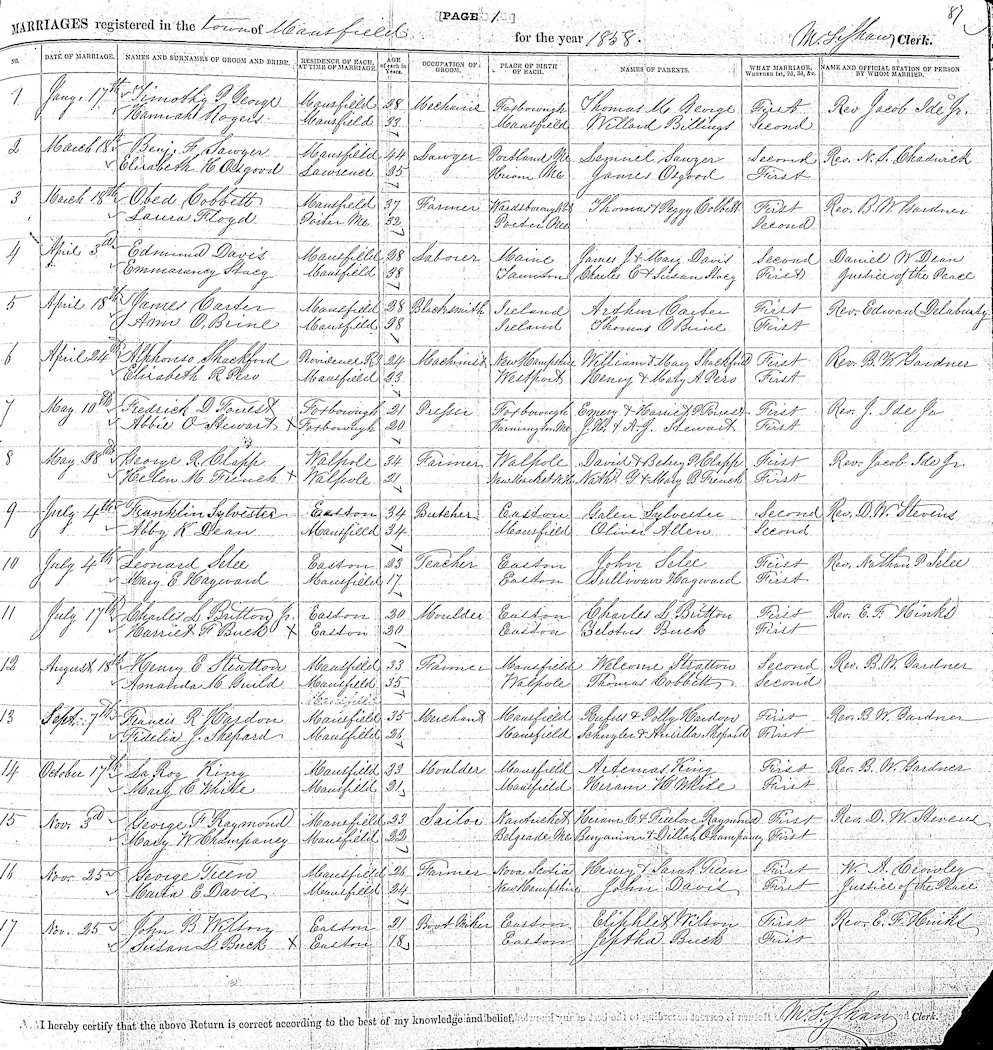 [PAGE 1.]
87
MARRIAGES registered in the town of Mansfield for the year 1858. M. F. Shaw Clerk.
NO. DATE OF MARRIAGE. NAMES AND SURNAMES OF GROOM AND BRIDE. RESIDENCE OF EACH, AT TIME OF MARRIAGE. AGE of each in Years. OCCUPATION OF GROOM. PLACE OF BIRTH OF EACH. NAMES OF PARENTS. WHAT MARRIAGE, WHETHER 1st, 2d, 3d, &c. NAME AND OFFICIAL STATION OF PERSON BY WHOM MARRIED.
1 Jany. 17th Timothy P. George Mansfield 28 Mechanic Foxborough Thomas M. George First Rev Jacob Ide Jr.
Hannah Rogers Mansfield 33 Mansfield Willard Billings Second
2 March 18th Benj. F. Sawyer Mansfield 44 Sawyer Portland Me Samuel Sawyer Second Rev. N. S. Chadwick
Elizabeth H Osgood Lawrence 35 Me James Osgood First
3 March 18th Obed Cobbett Mansfield 37 Farmer Thomas & Peggy Cobbett First Rev. B. W. Gardner
Laura Floyd Porter Me 32 Porter Me Second
4 April 3d Edmund Davis Mansfield 28 Laborer Maine James J & Mary Davis Second Daniel W. Dean
Emmarancy Stacy Mansfield 38 Taunton Charles C & Susan Stacy First Justice of the Peace
5 April 18th James Carter Mansfield 28 Blacksmith Ireland Arthur Carter First Rev. Edward
Ann O,Brine Mansfield 28 Ireland Thomas O Brine First
6 April 24th Alphonso Shackford Providence R.I 24 Machinist New Hampshire William & Mary Shackford First Rev. B. W. Gardner
Elizabeth R. Pero Mansfield 23 Westport Henry & Mary A Pero First
7 May 10th Fredrick D Forrest Foxborough 21 Presser Foxborough Emery & Harriet P Forrest First Rev. J. Ide Jr
Abbie O Stewart x Foxborough 20 Farmington Me J. W. & A. J. Stewart First
8 May 28th George R. Clapp Walpole 34 Farmer Walpole David & Betsey P. Clapp First Rev. Jacob Ide Jr.
Helen M. French x Walpole 21 New Market N.H Nath'l G & Mary B French First
9 July 4th Franklin Sylvester Easton 34 Butcher Easton Galen Sylvester Second Rev. D. W. Stevens
Abby K Dean Mansfield 34 Mansfield Oliver Allen Second
10 July 4th Leonard Selee Easton 23 Teacher Easton John Selee First Rev. Nathan P. Selee
Mary E Hayward Mansfield 17 Easton Sullivan Hayward First
11 July 17th Charles L Britton Jr. Easton 20 Moulder Easton Charles L Britton First Rev. E. F. Hinks
Harriet F Buck x Easton 20 Easton Belotus Buck First
12 August 18th Henry E Stratton Mansfield 33 Farmer Mansfield Welcome Stratton Second Rev. B. W. Gardner
Amanda M. Guild Mansfield 35 Walpole Thomas Cobbett Second
13 Sept. 7th Francis R Hardon Mansfield 35 Merchant Mansfield Rufus & Polly Hardon First Rev. B. W. Gardner
Fidelia J. Shepard Mansfield 26 Mansfield Schuyler & Shepard First
14 October 17th La Roy King Mansfield 23 Moulder Mansfield Artemas King First Rev. B. W. Gardner
Mary C White Mansfield 21 Mansfield Hiram H. White First
15 Nov. 3d George F. Raymond Mansfield 23 Sailor Nantucket Hiram C & Freelove Raymond First Rev. D. W. Stevens
Macy W Champancy Mansfield 22 Belgrade Me Benjamin & Dillah Champancy First
16 Nov. 25 George Teen Mansfield 26 Farmer Nova Scotia Henry & Sarah Teen First W. A. Crowley
Maria E. Davis Mansfield 24 New Hampshire John Davis First Justice of the Peace
17 Nov. 25 John B Wilson Easton 21 Boot Maker Easton Eliphlet Wilson First Rev. E. F. Hinks
Susan L Buck x Easton 18 Easton Jeptha Buck First
I hereby certify that the above Return is correct according to the best of my knowledge and belief, M. F. Shaw Clerk.